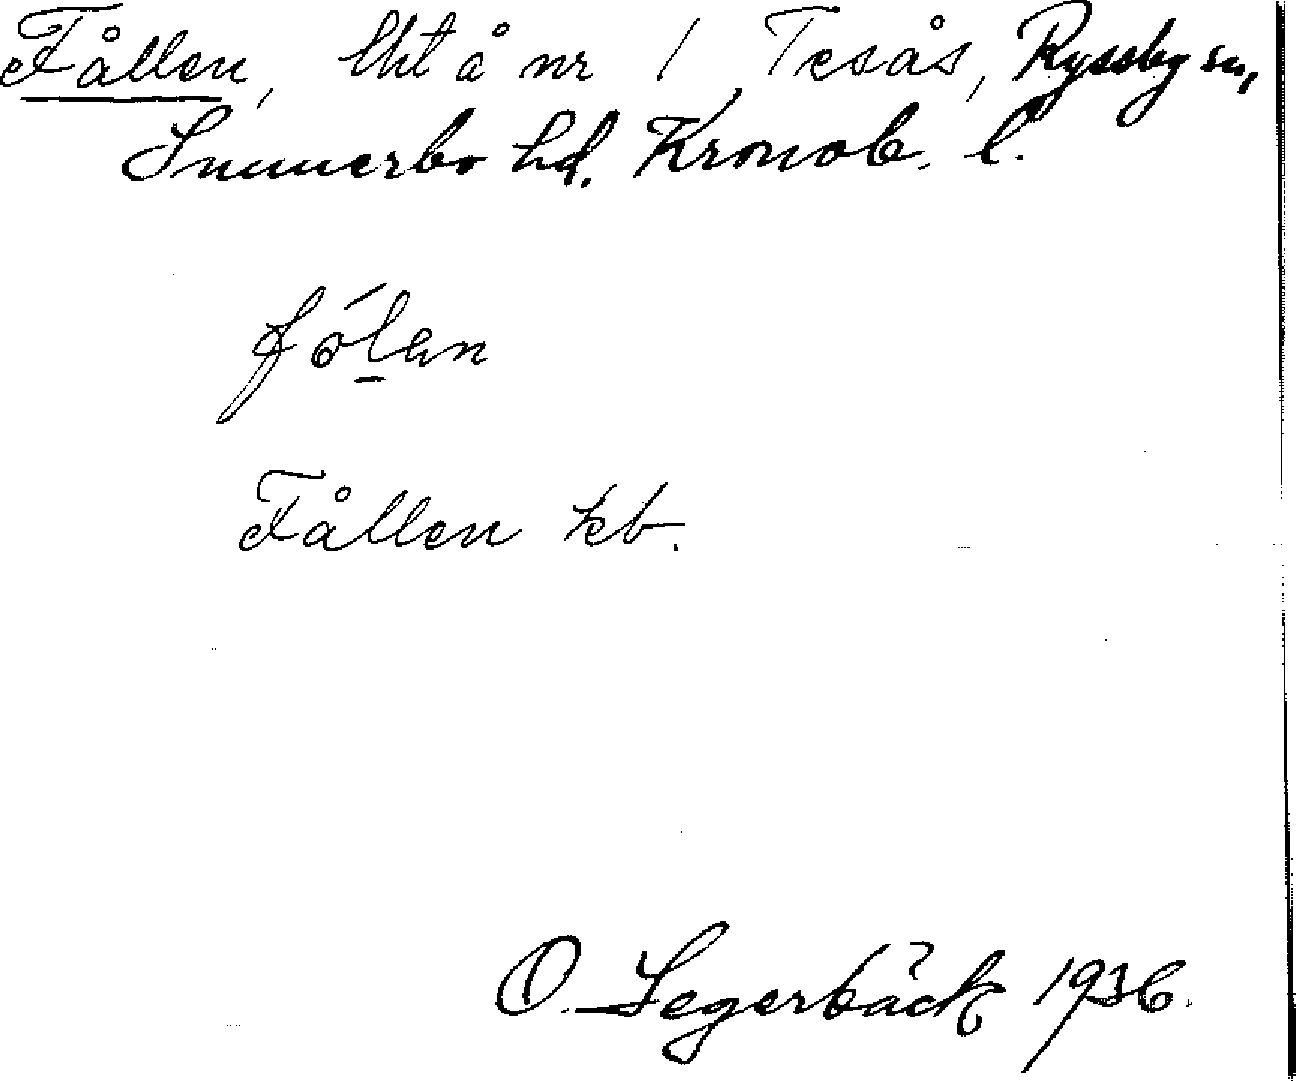 Fållen, lht å nr 1 Tesås, Ryssby sn,
Sunnerbo hd. Kronob. l.
fólan
Fållen kb.
O. Segerbäck 1936.